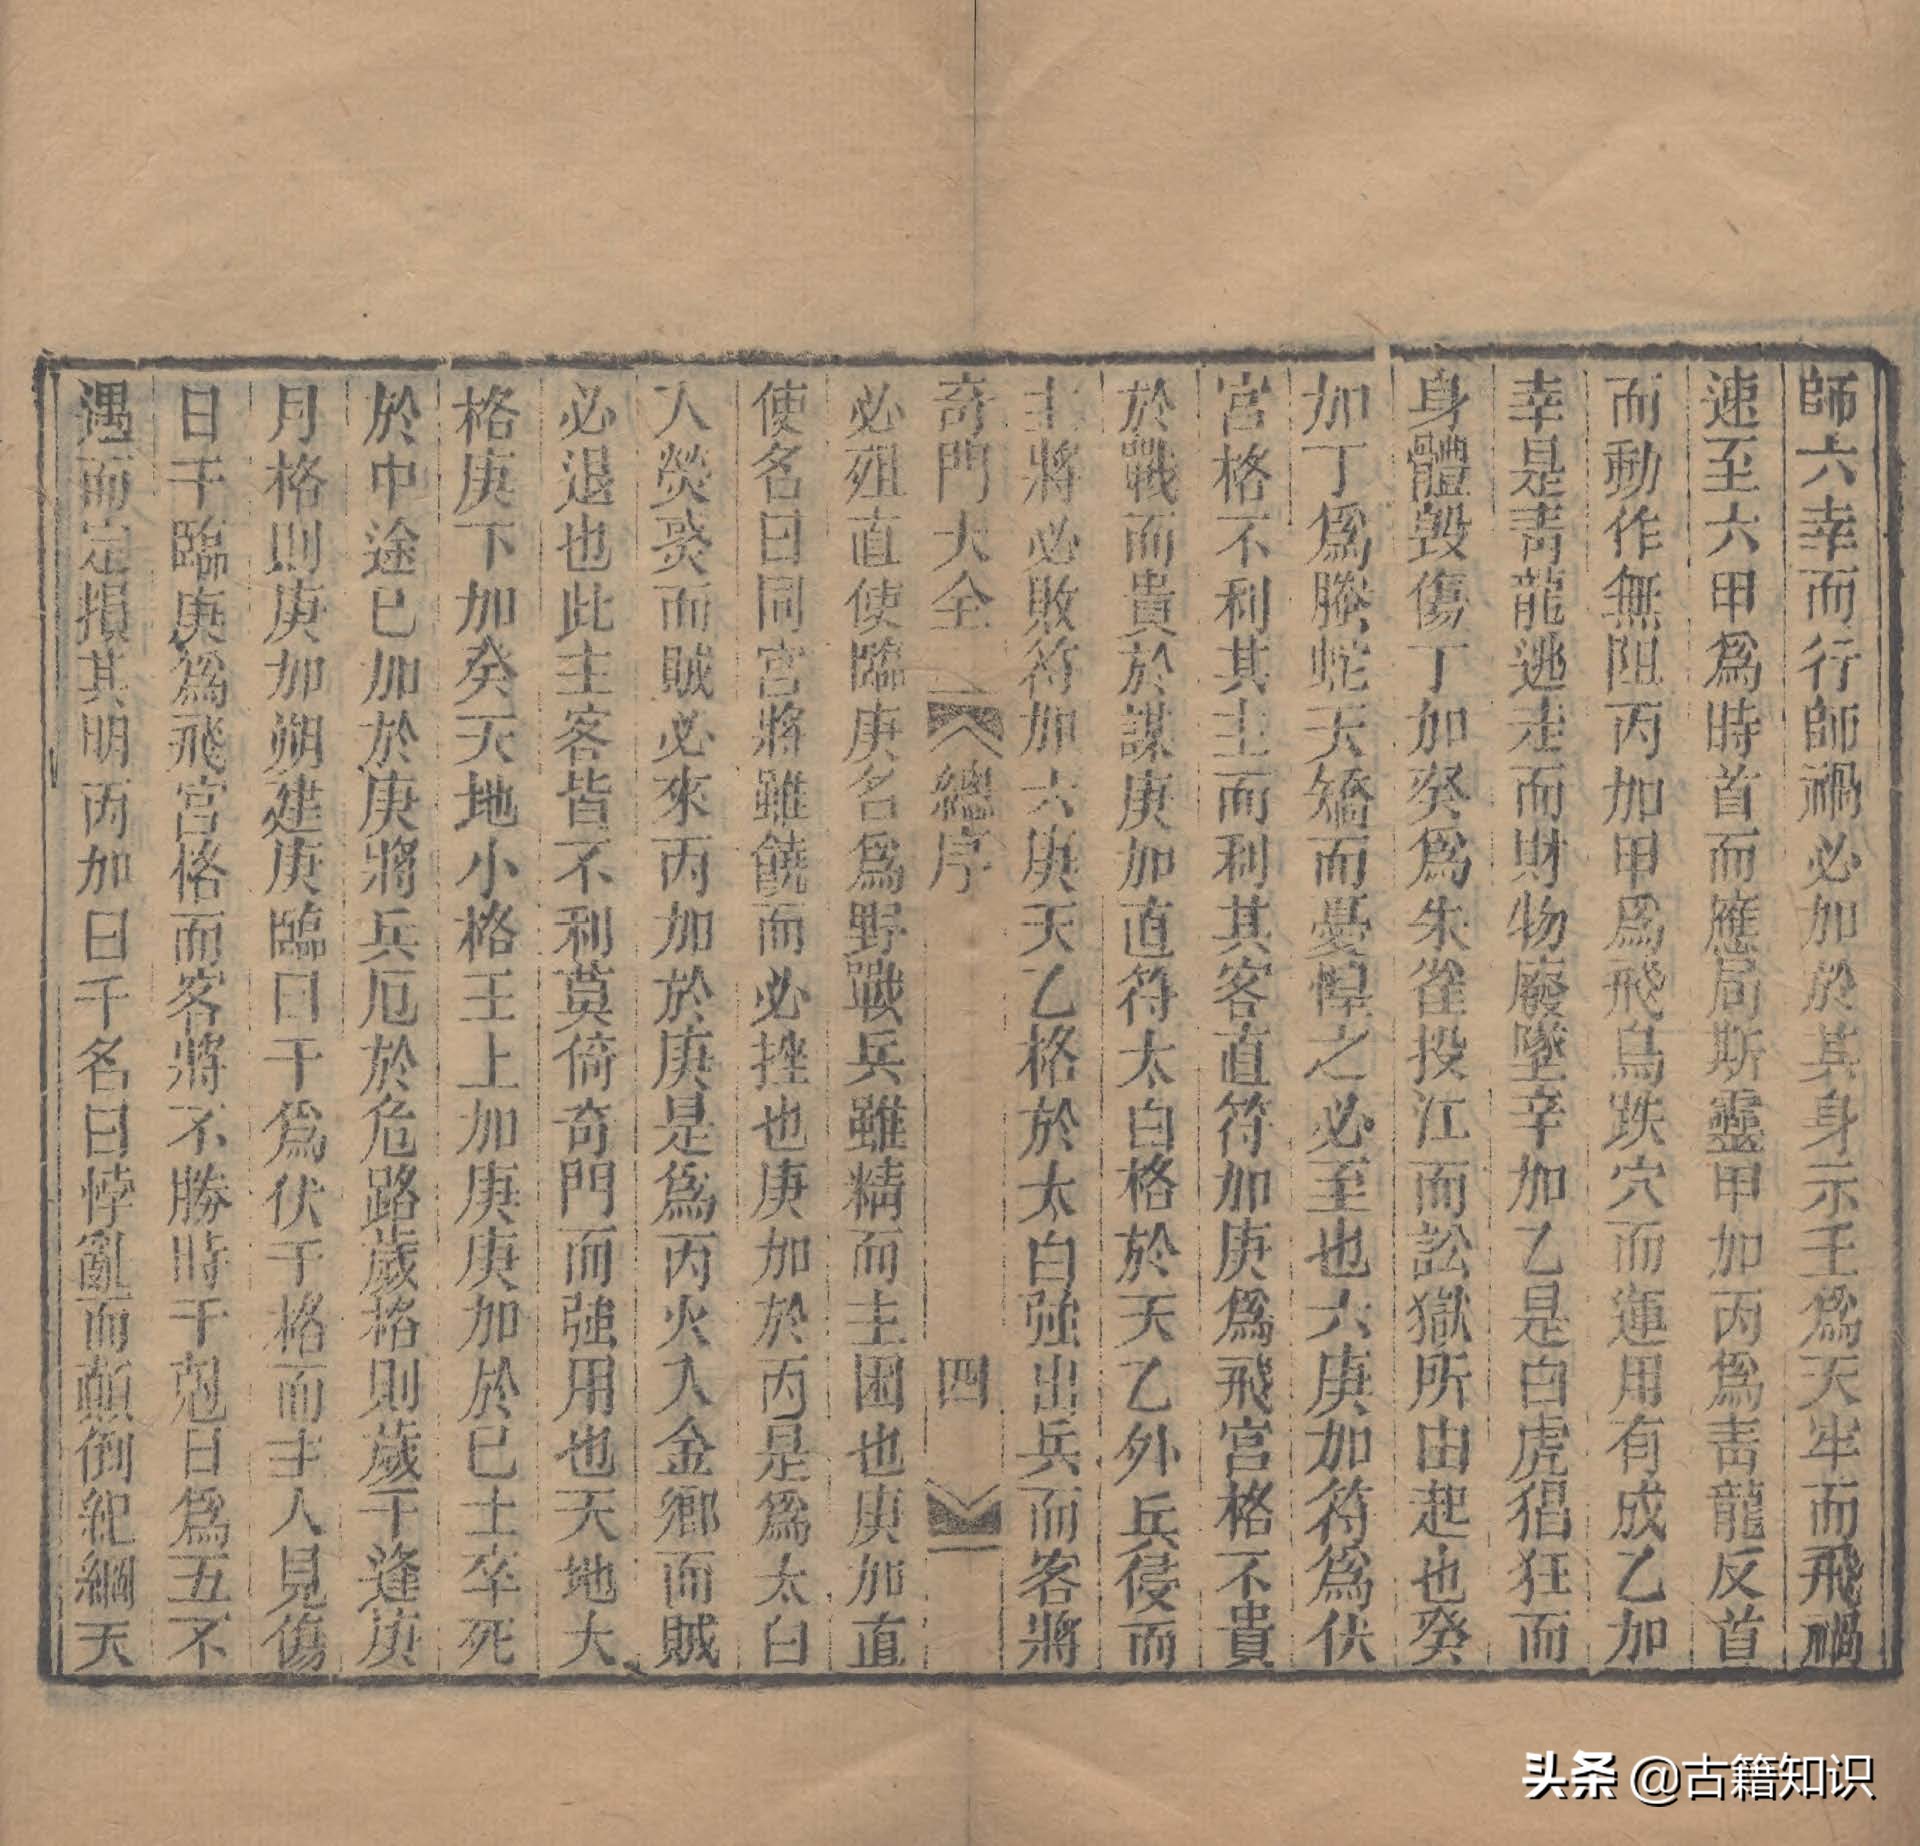 師六幸而行師禍必加於其身示壬爲天牢而飛禍
速至六甲爲時首而應局斯靈甲加丙爲靑龍反首
而動作無阻丙加甲爲飛鳥跌穴而運用有成乙加
幸是靑龍逃走而財物廢墜辛加乙是白虎猖狂而
身體毀傷丁加癸爲朱雀投江而訟獄所由起也癸
加丁爲螣蛇天矯而憂惶之必至也六庚加符爲伏
宮格不利其主而利其客直符加庚爲飛宮格不貴
於戰而貴於謀庚加直符太白格於天乙外兵侵而
主將必敗符加六庚天乙格於太白強出兵而客將
奇門大全 總序 四
必殂直使臨庚名爲野戰兵雖精而主困也庚加直
使名曰同宮將雖饒而必挫也庚加於丙是爲太白
入熒熒而賊必來丙加於庚是爲丙火入金鄉而賊
必退也此主客皆不利莫倚奇門而強用也天地大
格庚下加癸天地小格王上加庚庚加於已士卒死
於中途已加於庚將兵厄於危路歲格則歲干逢庚
月格則庚加朔建庚臨日干爲伏干格而主人見傷
日干臨庚爲飛宮格而客將不勝時干剋日爲五不
遇而定損其明丙加日干名曰悖亂而顛倒紀綱天
头条 @古籍知识